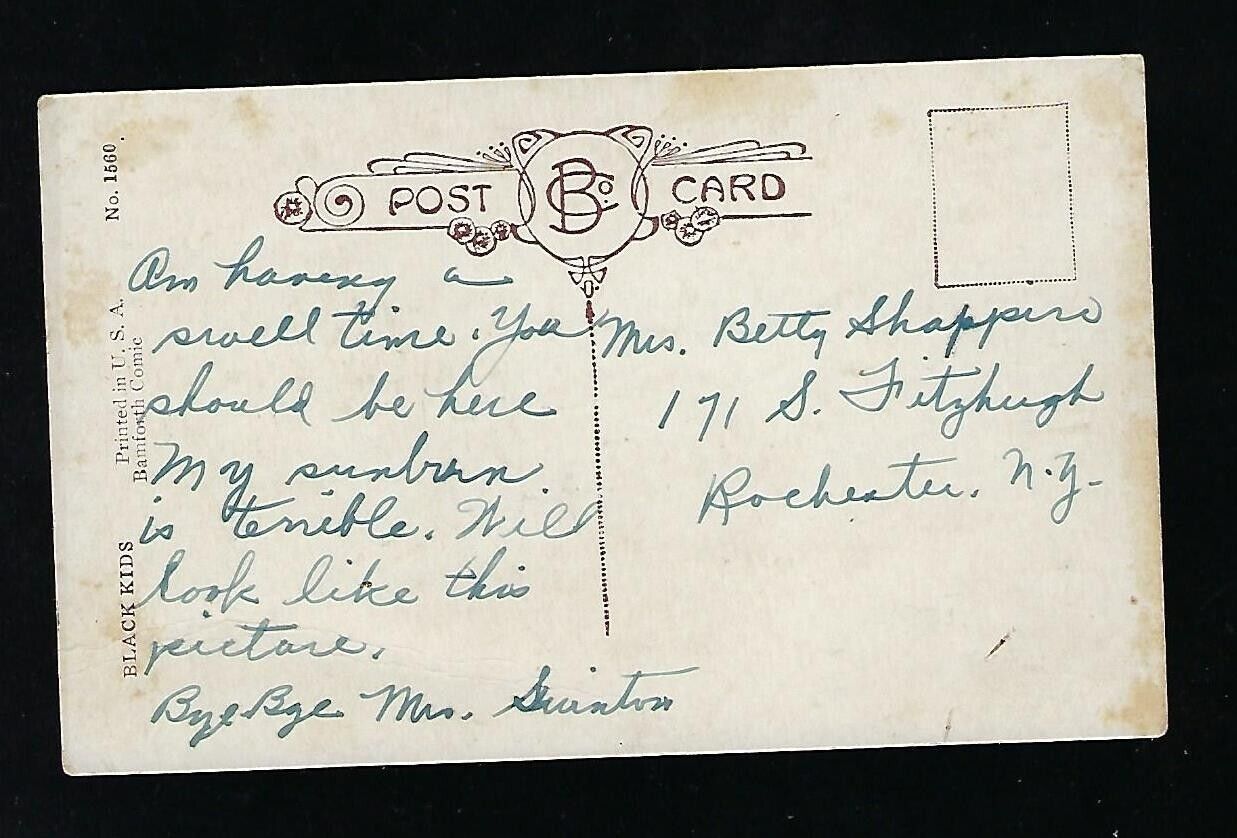 POST CARD
B Co.
No. 1560.
Printed in U. S. A.
Bamforth Comic
BLACK KIDS
Am having a
swell time. You
should be here
My sunburn
is terrible. Will
look like this
picture.
Bye Bye Mrs. Swinton
Mrs. Betty Shappiro
171 S. Fitzhugh
Rochester, N.Y.